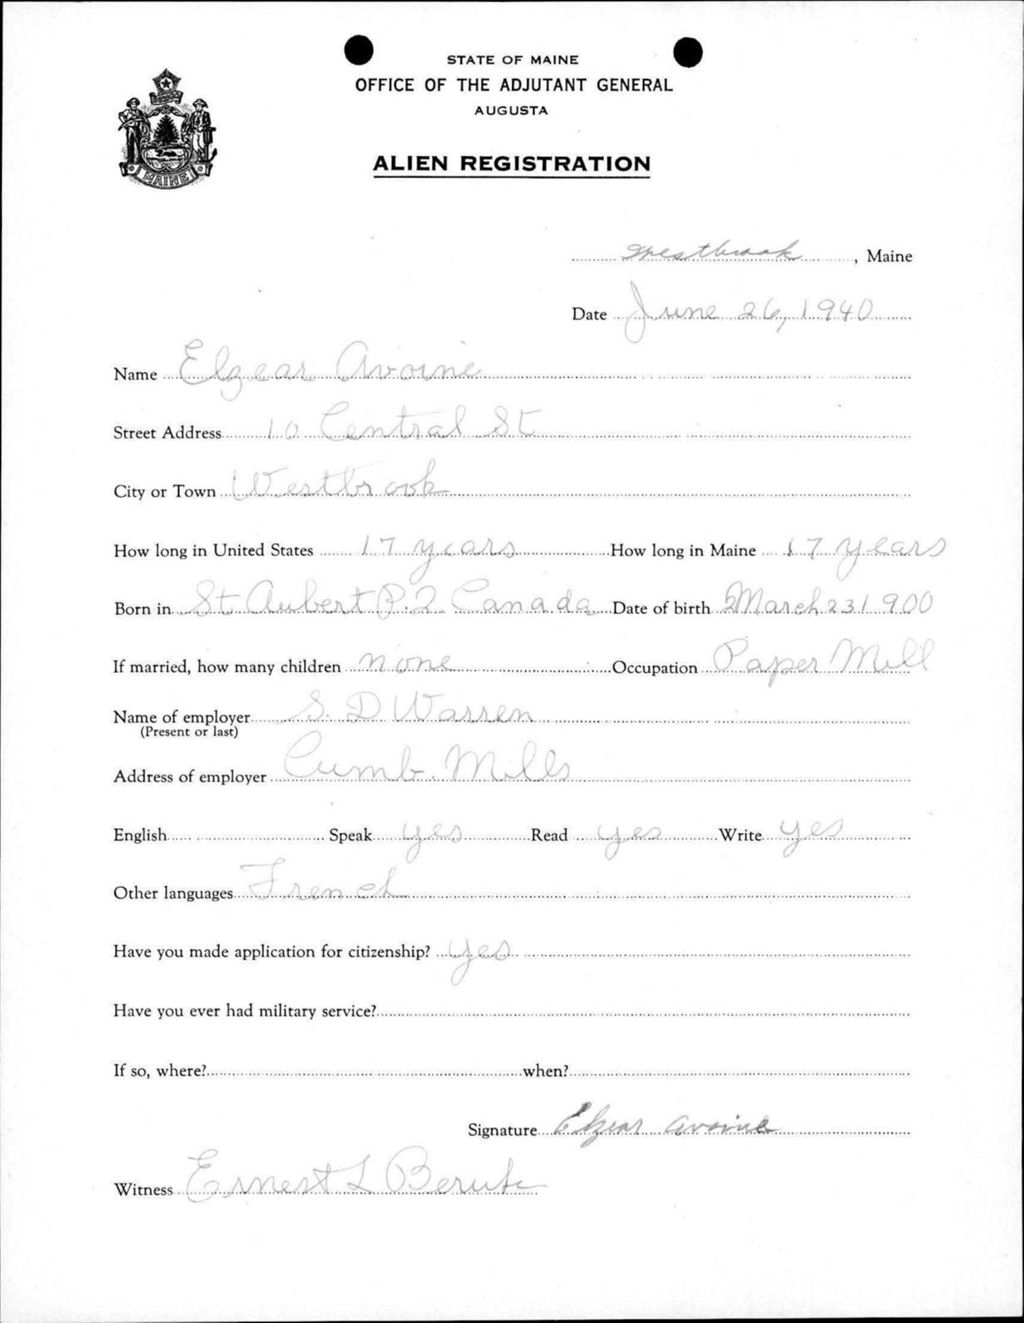 STATE OF MAINE
OFFICE OF THE ADJUTANT GENERAL
AUGUSTA
MAINE
ALIEN REGISTRATION
Westbrook, Maine
Date June 26, 1940
Name Elzear Avoine
Street Address 10 Central St
City or Town Westbrook
How long in United States 17 years How long in Maine 17 years
Born in St Aubert P.Q. Canada Date of birth March 23 1900
If married, how many children none Occupation Paper Mill
Name of employer S. D Warren
(Present or last)
Address of employer Cumb. Mills
English Speak yes Read yes Write yes
Other languages French
Have you made application for citizenship? yes
Have you ever had military service?
If so, where? when?
Signature Elzear Avoine
Witness Ernest L